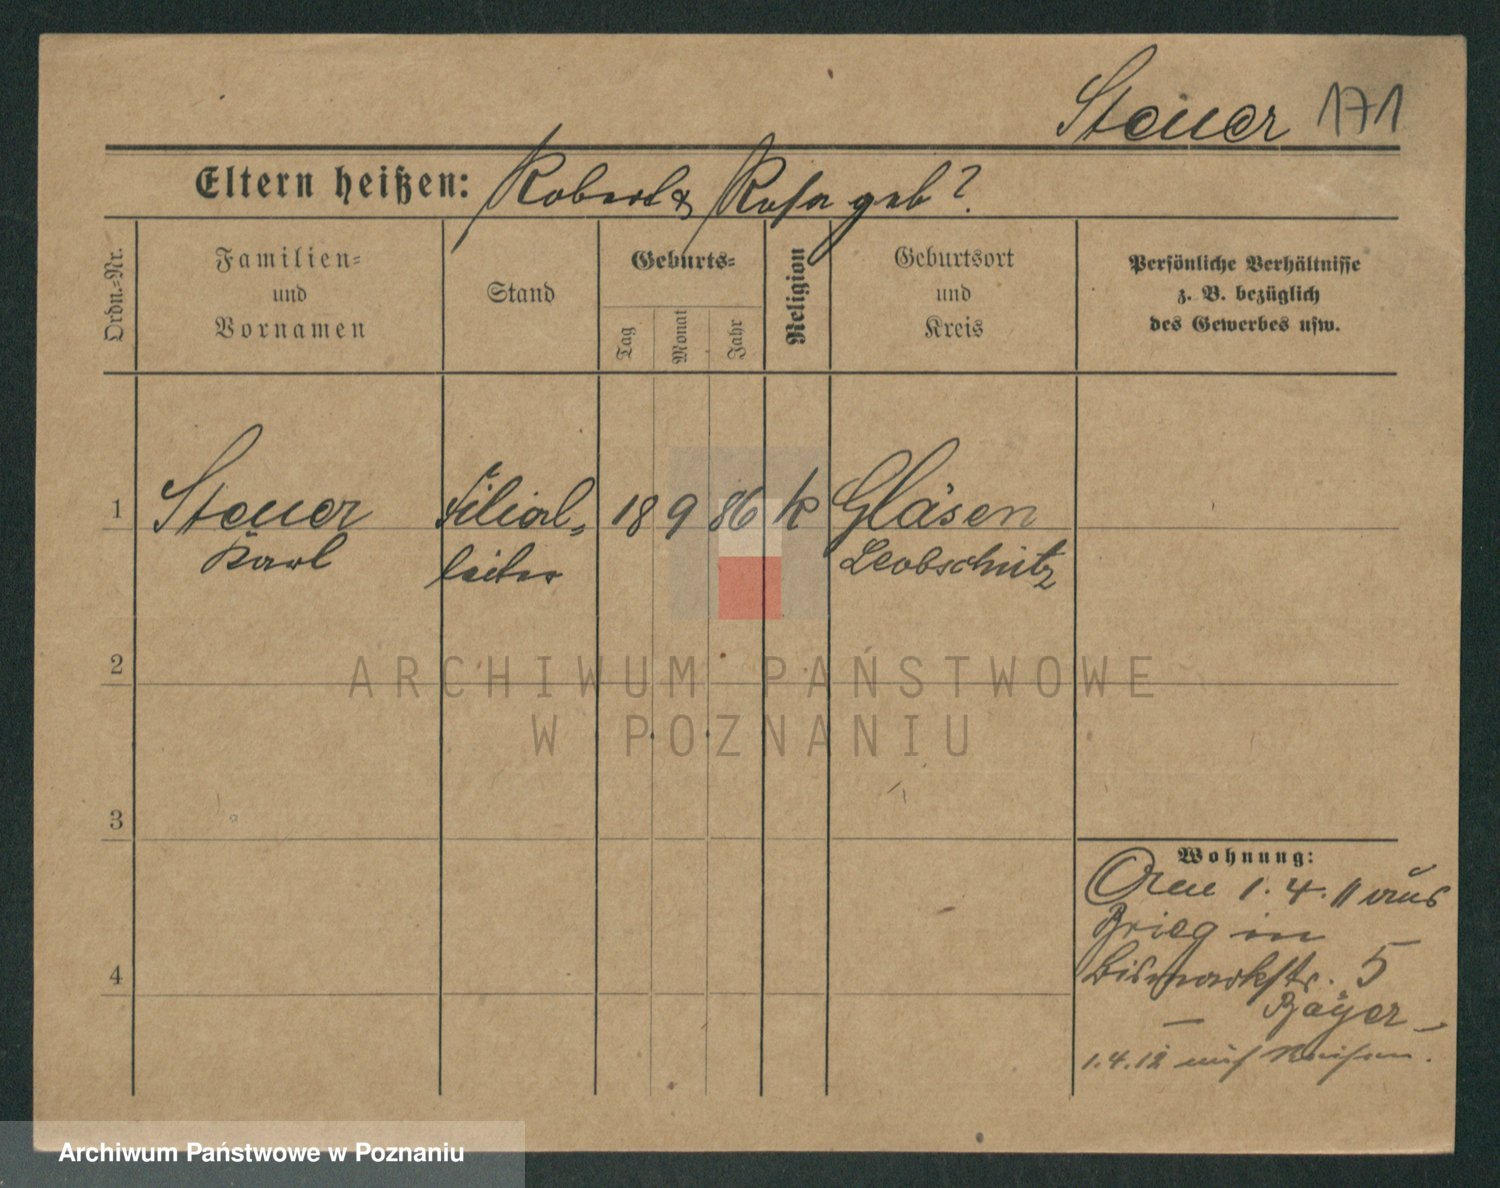 Steuer 171
Eltern heißen: Robert & Rosa geb?
Ordn.-Nr.
Familien-
und
Vornamen
Stand
Geburts-
Tag
Monat
Jahr
Religion
Geburtsort
und
Kreis
Persönliche Verhältnisse
z. B. bezüglich
des Gewerbes usw.
1 Steuer Filial- 18 9 86 k Gläsen
Karl leiter Leobschütz
2
ARCHIWUM PAŃSTWOWE
W POZNANIU
3
Wohnung:
1.4.11 aus
Brieg in
Bismarckstr. 5
Bayer
4
1.4.12 auf Reisen.
Archiwum Państwowe w Poznaniu